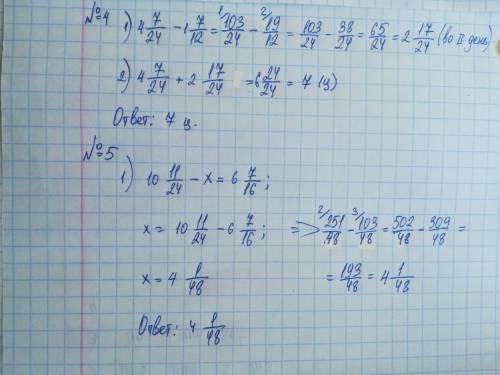 №4 1) 4 7/24 − 1 7/12 = 103/24 − 19/12 = 103/24 − 38/24 = 65/24 = 2 17/24 (во II день)
2) 4 7/24 + 2 17/24 = 6 24/24 = 7 (ц)
Ответ: 7 ц.
№5
1) 10 11/24 − x = 6 7/16;
x = 10 11/24 − 6 7/16; => 251/48 − 103/48 = 502/48 − 309/48 =
x = 4 1/48 = 193/48 = 4 1/48
Ответ: 4 1/48